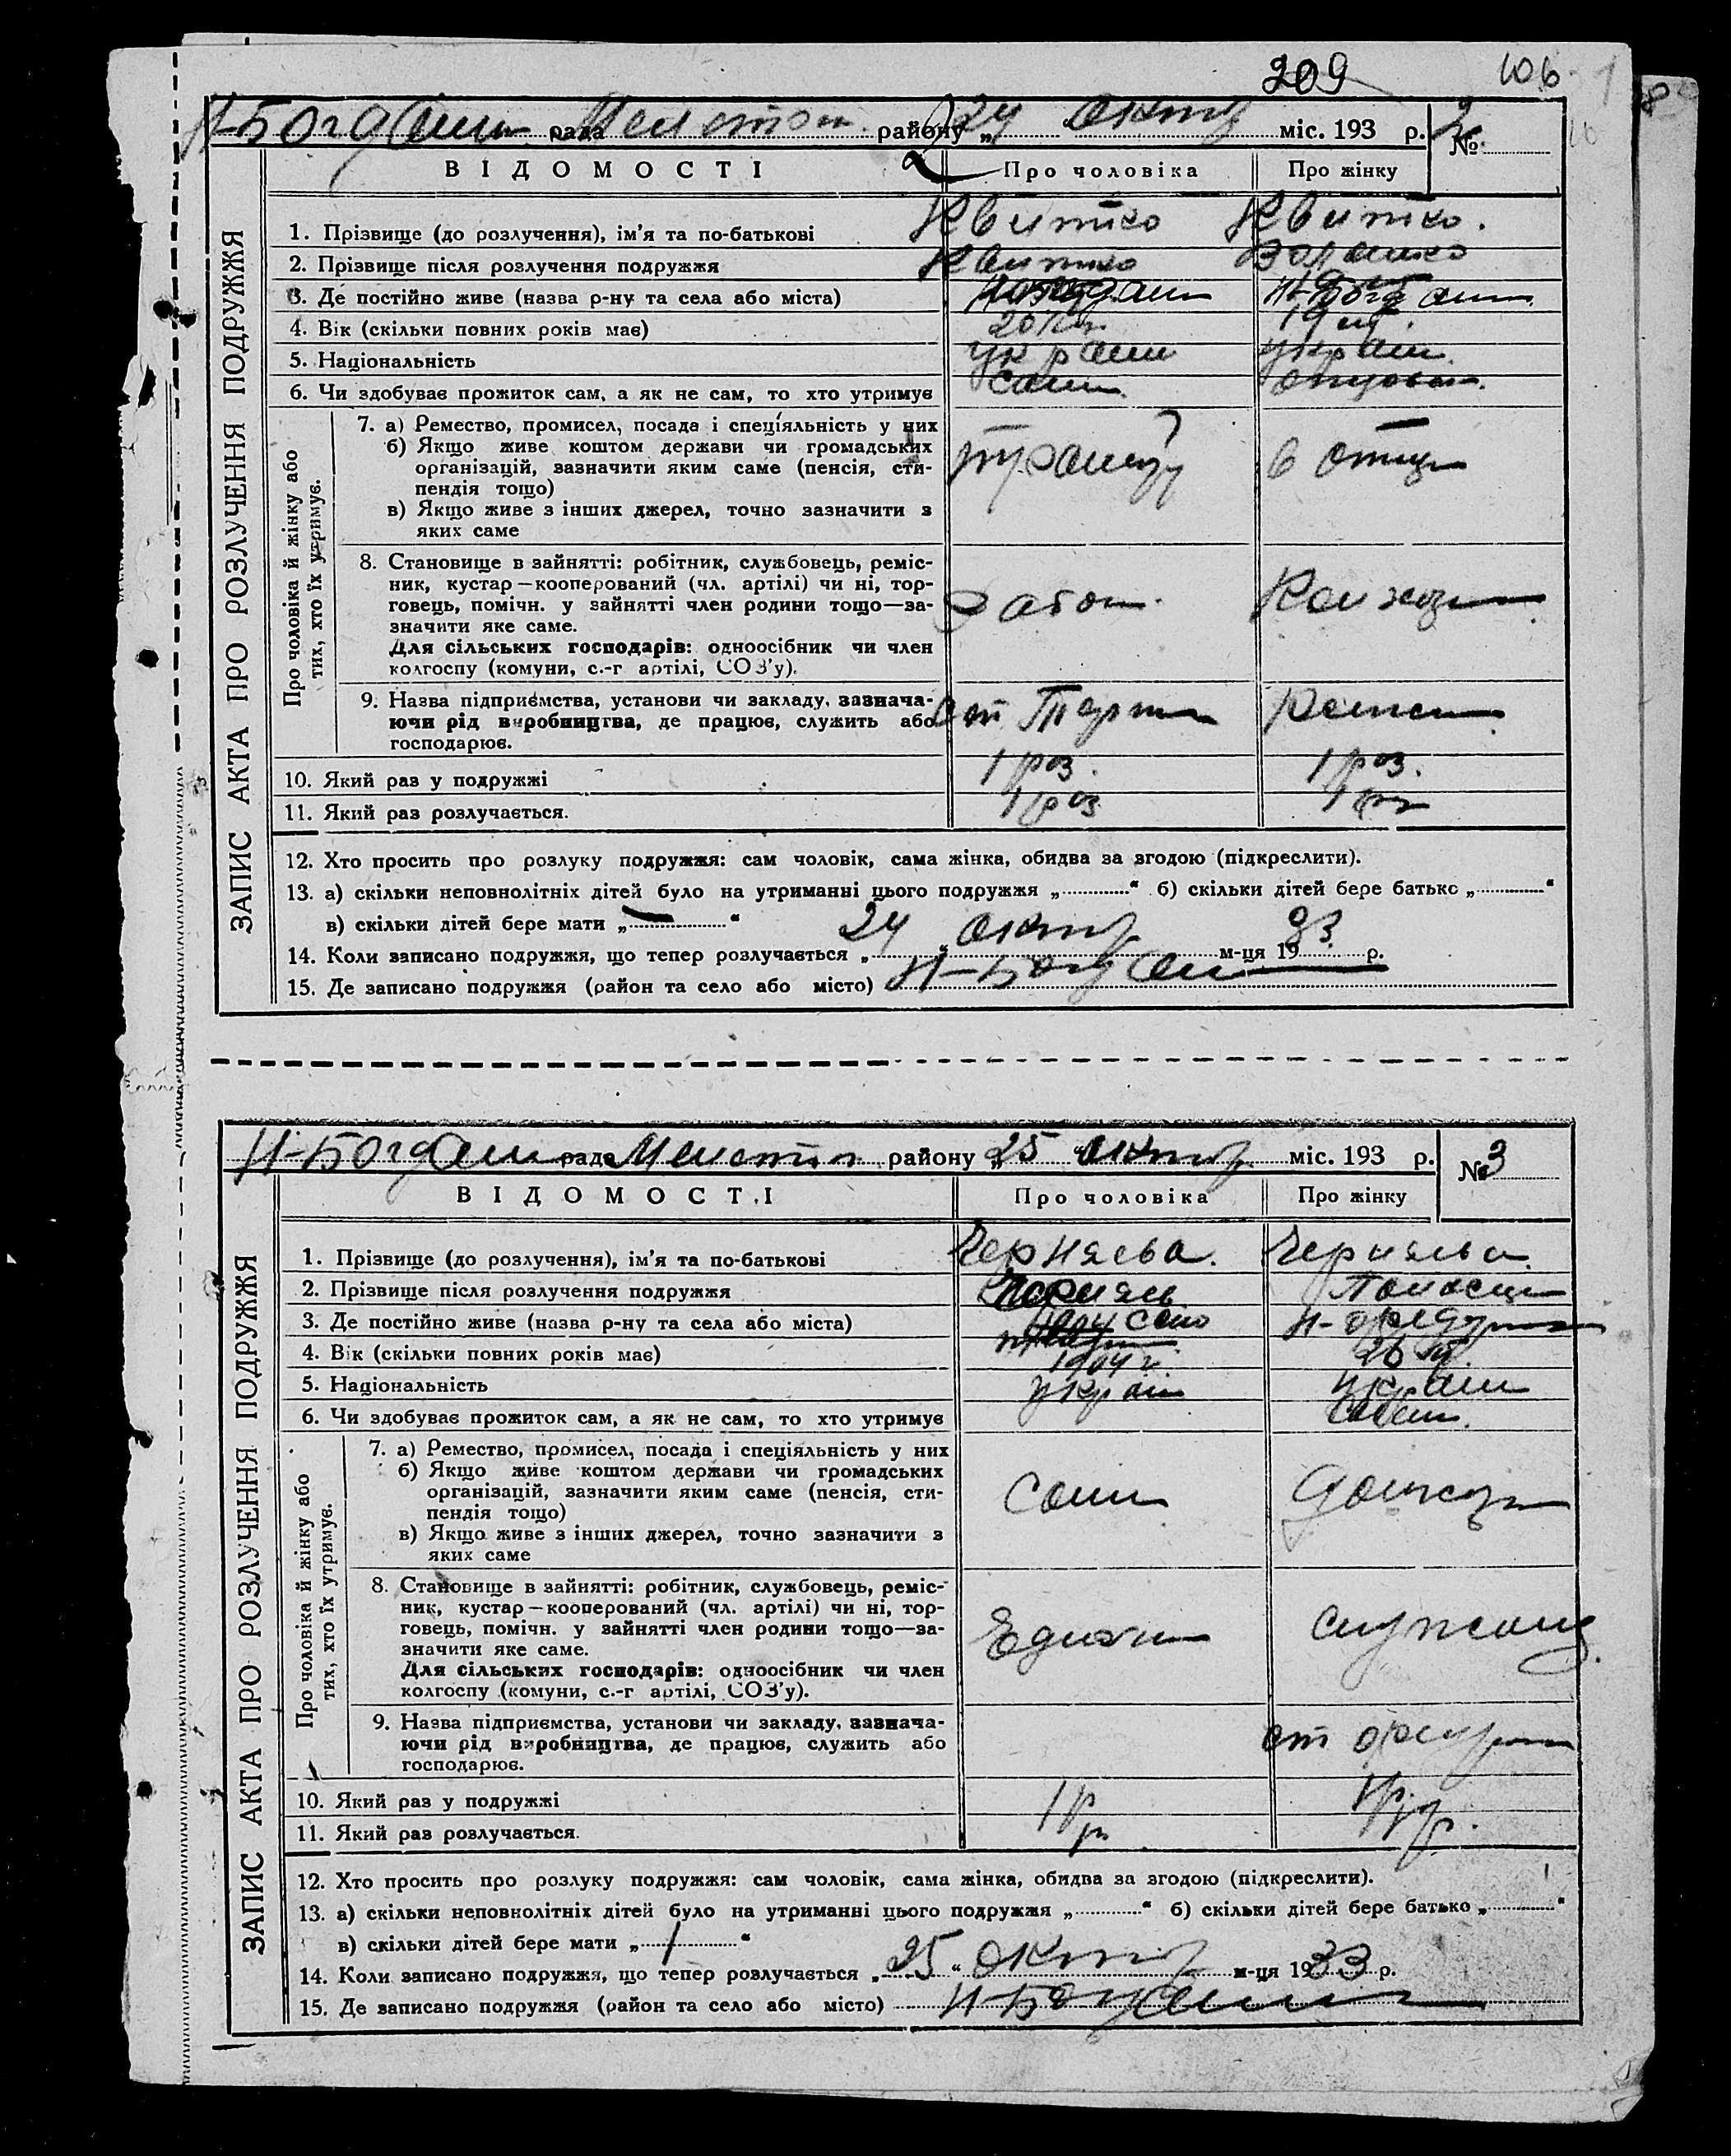 209 106
Н-Богдан рада Мелитоп. району „24 октяб міс. 193 р. № 2
ВІДОМОСТІ Про чоловіка Про жінку
ЗАПИС АКТА ПРО РОЗЛУЧЕННЯ ПОДРУЖЖЯ
1. Прізвище (до розлучення), ім'я та по-батькові Квитко Квитко.
2. Прізвище після розлучення подружжя Квитко
3. Де постійно живе (назва р-ну та села або міста) Н-Богдан
4. Вік (скільки повних років має) 19 лт.
5. Національність украин украин.
6. Чи здобуває прожиток сам, а як не сам, то хто утримує Сам
Про чоловіка й жінку або
тих, хто їх утримує.
7. а) Ремество, промисел, посада і спеціяльність у них
б) Якщо живе коштом держави чи громадських
організацій, зазначити яким саме (пенсія, сти-
пендія тощо) в отца
в) Якщо живе з інших джерел, точно зазначити з
яких саме
8. Становище в зайнятті: робітник, службовець, реміс-
ник, кустар—кооперований (чл. артілі) чи ні, тор-
говець, помічн. у зайнятті член родини тощо—за- рабоч. Колхоз
значити яке саме.
Для сільських господарів: одноосібник чи член
колгоспу (комуни, с.-г артілі, СОЗ'у).
9. Назва підприємства, установи чи закладу, зазнача-
ючи рід виробництва, де працює, служить або
господарює.
10. Який раз у подружжі 1 роз. 1 роз.
11. Який раз розлучається. 1 роз
12. Хто просить про розлуку подружжя: сам чоловік, сама жінка, обидва за згодою (підкреслити).
13. а) скільки неповнолітніх дітей було на утриманні цього подружжя „ “ б) скільки дітей бере батько „ “
в) скільки дітей бере мати „ — “
14. Коли записано подружжя, що тепер розлучається „ 24 “ октяб м-ця 1933 р.
15. Де записано подружжя (район та село або місто) Н-Богдан
Н-Богдан рада Мелитоп району „25 октяб міс. 193 р. № 3
ВІДОМОСТІ Про чоловіка Про жінку
ЗАПИС АКТА ПРО РОЗЛУЧЕННЯ ПОДРУЖЖЯ
1. Прізвище (до розлучення), ім'я та по-батькові Черняева. Черняева
2. Прізвище після розлучення подружжя
3. Де постійно живе (назва р-ну та села або міста)
4. Вік (скільки повних років має) 1904 г. 26 лт.
5. Національність україн украин
6. Чи здобуває прожиток сам, а як не сам, то хто утримує
Про чоловіка й жінку або
тих, хто їх утримує.
7. а) Ремество, промисел, посада і спеціяльність у них
б) Якщо живе коштом держави чи громадських
організацій, зазначити яким саме (пенсія, сти- Сам
пендія тощо)
в) Якщо живе з інших джерел, точно зазначити з
яких саме
8. Становище в зайнятті: робітник, службовець, реміс-
ник, кустар—кооперований (чл. артілі) чи ні, тор-
говець, помічн. у зайнятті член родини тощо—за-
значити яке саме.
Для сільських господарів: одноосібник чи член
колгоспу (комуни, с.-г артілі, СОЗ'у).
9. Назва підприємства, установи чи закладу, зазнача-
ючи рід виробництва, де працює, служить або
господарює.
10. Який раз у подружжі 1 р 1 р.
11. Який раз розлучається.
12. Хто просить про розлуку подружжя: сам чоловік, сама жінка, обидва за згодою (підкреслити).
13. а) скільки неповнолітніх дітей було на утриманні цього подружжя „ “ б) скільки дітей бере батько „ “
в) скільки дітей бере мати „ 1 “
14. Коли записано подружжя, що тепер розлучається „ 25 “ октяб м-ця 1933 р.
15. Де записано подружжя (район та село або місто) Н-Богдан